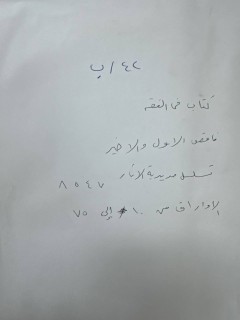 ٤٢/ب
كتاب في الفقه
ناقص الاول والاخير
تسلسل مديرية الآثار ٨٥٤٧
الاوراق من ١٠ الى ٧٥